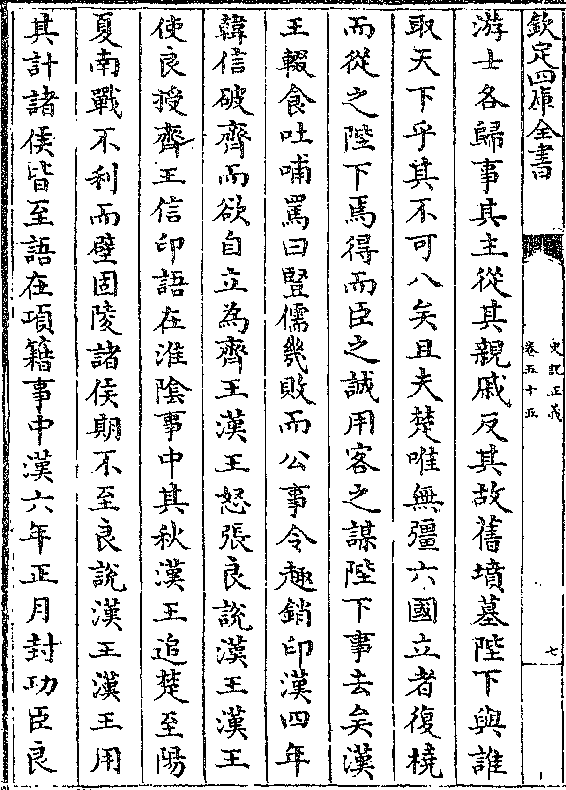 欽定四庫全書
史記正義
卷五十五
七
游士各歸事其主從其親戚反其故舊墳墓陛下與誰
取天下乎其不可八矣且夫楚唯無彊六國立者復橈
而從之陛下焉得而臣之誠用客之謀陛下事去矣漢
王輟食吐哺罵曰豎儒幾敗而公事令趣銷印漢四年
韓信破齊而欲自立為齊王漢王怒張良說漢王漢王
使良授齊王信印語在淮陰事中其秋漢王追楚至陽
夏南戰不利而壁固陵諸侯期不至良說漢王漢王用
其計諸侯皆至語在項籍事中漢六年正月封功臣良